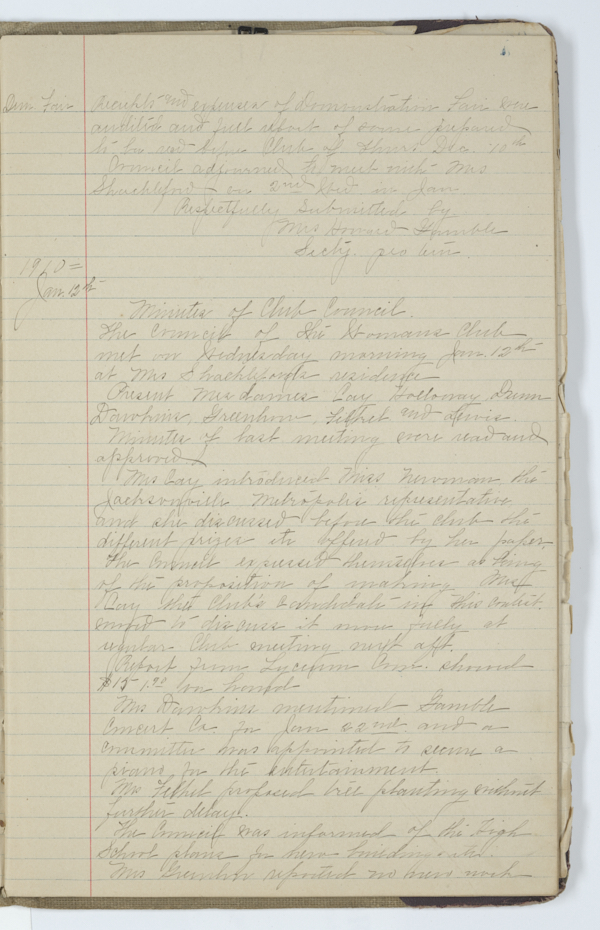 Dem. Fair Receipts and expenses of Demonstration Fair were
audited and full report of same prepared
to be read before Club of Thurs Dec. 10th
Council adjourned to meet with Mrs
Shackleford on 2nd Wed in Jan.
Respectfully Submitted by
Mrs Howard Gamble
Secty. pro tem.
1910 =
Jan. 12th
Minutes of Club Council.
The Council of the Womans Club
met on Wednesday morning Jan. 12th
at Mrs Shacklefords residence
Present Mesdames Cay Holloway, Dunn
Dawkins, Greenhow, Fethel and Lewis.
Minutes of last meeting were read and
approved.
Mrs Cay introduced Miss Newman the
Jacksonville Metropolis representative
and she discussed before the club the
different prizes etc offered by her paper.
The Council expressed themselves
of the proposition of making Mrs
Cay the Club's candidate in this contest.
to discuss it more fully at
regular Club meeting next aft.
Report from Lyceum Com. showed
on hand
Mrs Dawkins mentioned Gamble
Concert Co. for Jan 22nd and a
committee was appointed to secure a
piano for the entertainment.
Mrs Fethel proposed tree planting without
further delay.
The Council was informed of the High
School plans for new building
Mrs Greenhow reported no new work